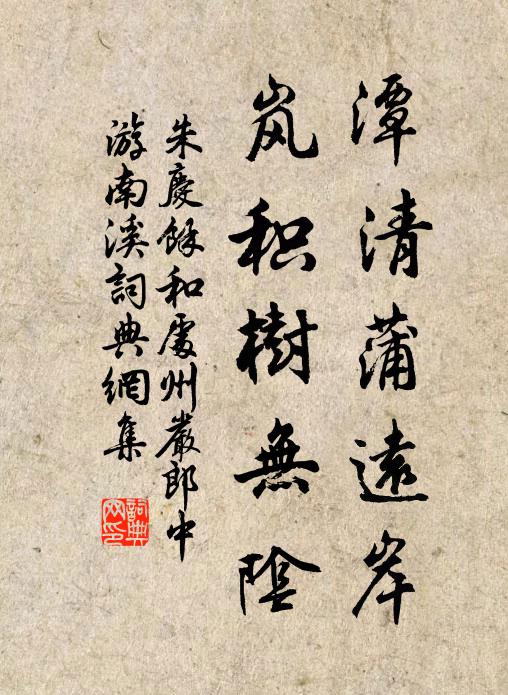 潭清蒲遠岸
岚积樹無陰
朱慶餘和處州嚴郎中
游南溪詞典網集
詞典
网印